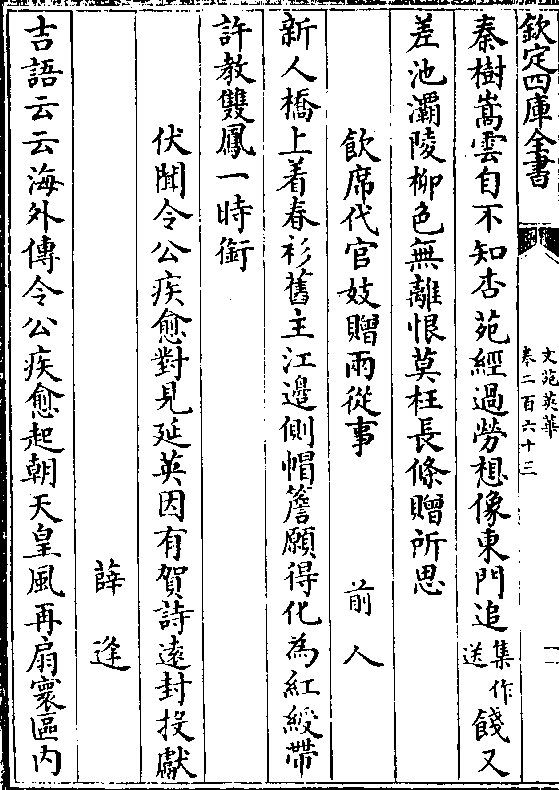 欽定四庫全書
文苑英華
卷二百六十三
秦樹嵩雲自不知杏苑經過勞想像東門追集作送餞又
差池灞陵柳色無離恨莫枉長條贈所思
飲席代官妓贈兩從事
前人
新人橋上着春衫舊主江邊側帽簷願得化為紅綬帶
許教雙鳳一時銜
伏聞令公疾愈對見延英因有賀詩遠封投獻
薛逢
吉語云云海外傳令公疾愈起朝天皇風再扇寰區內